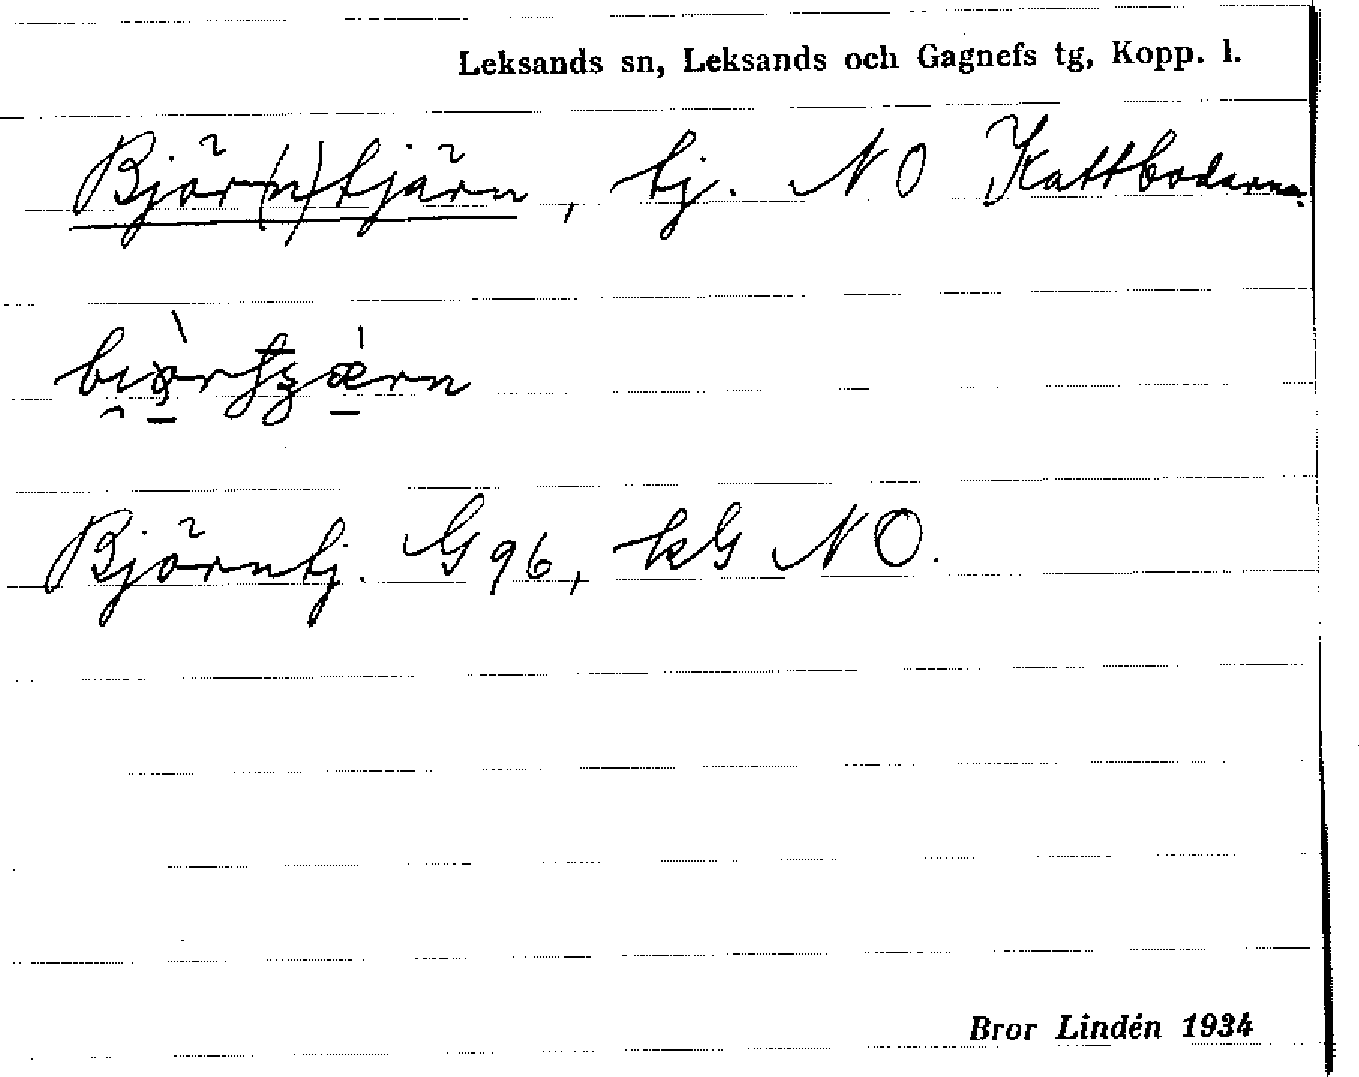 Leksands sn, Leksands och Gagnefs tg, Kopp. l.
Björ(n)tjärn, tj. NO Kattbodarna.
Björntj. G 96, kG NO.
Bror Lindén 1934